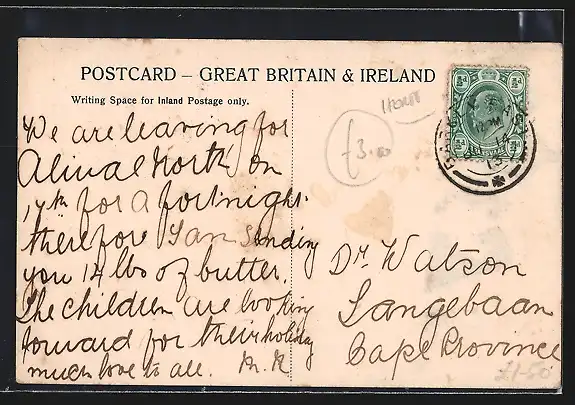 POSTCARD – GREAT BRITAIN & IRELAND
Writing Space for Inland Postage only.
We are leaving for
Aliwal North on
17th for a fortnight.
therefore I am sending
you 14 lbs of butter.
The children are looking
forward for their holiday
much love to all. M. R
£3.00
Dr Watson
Langebaan
Cape Province
£1-50